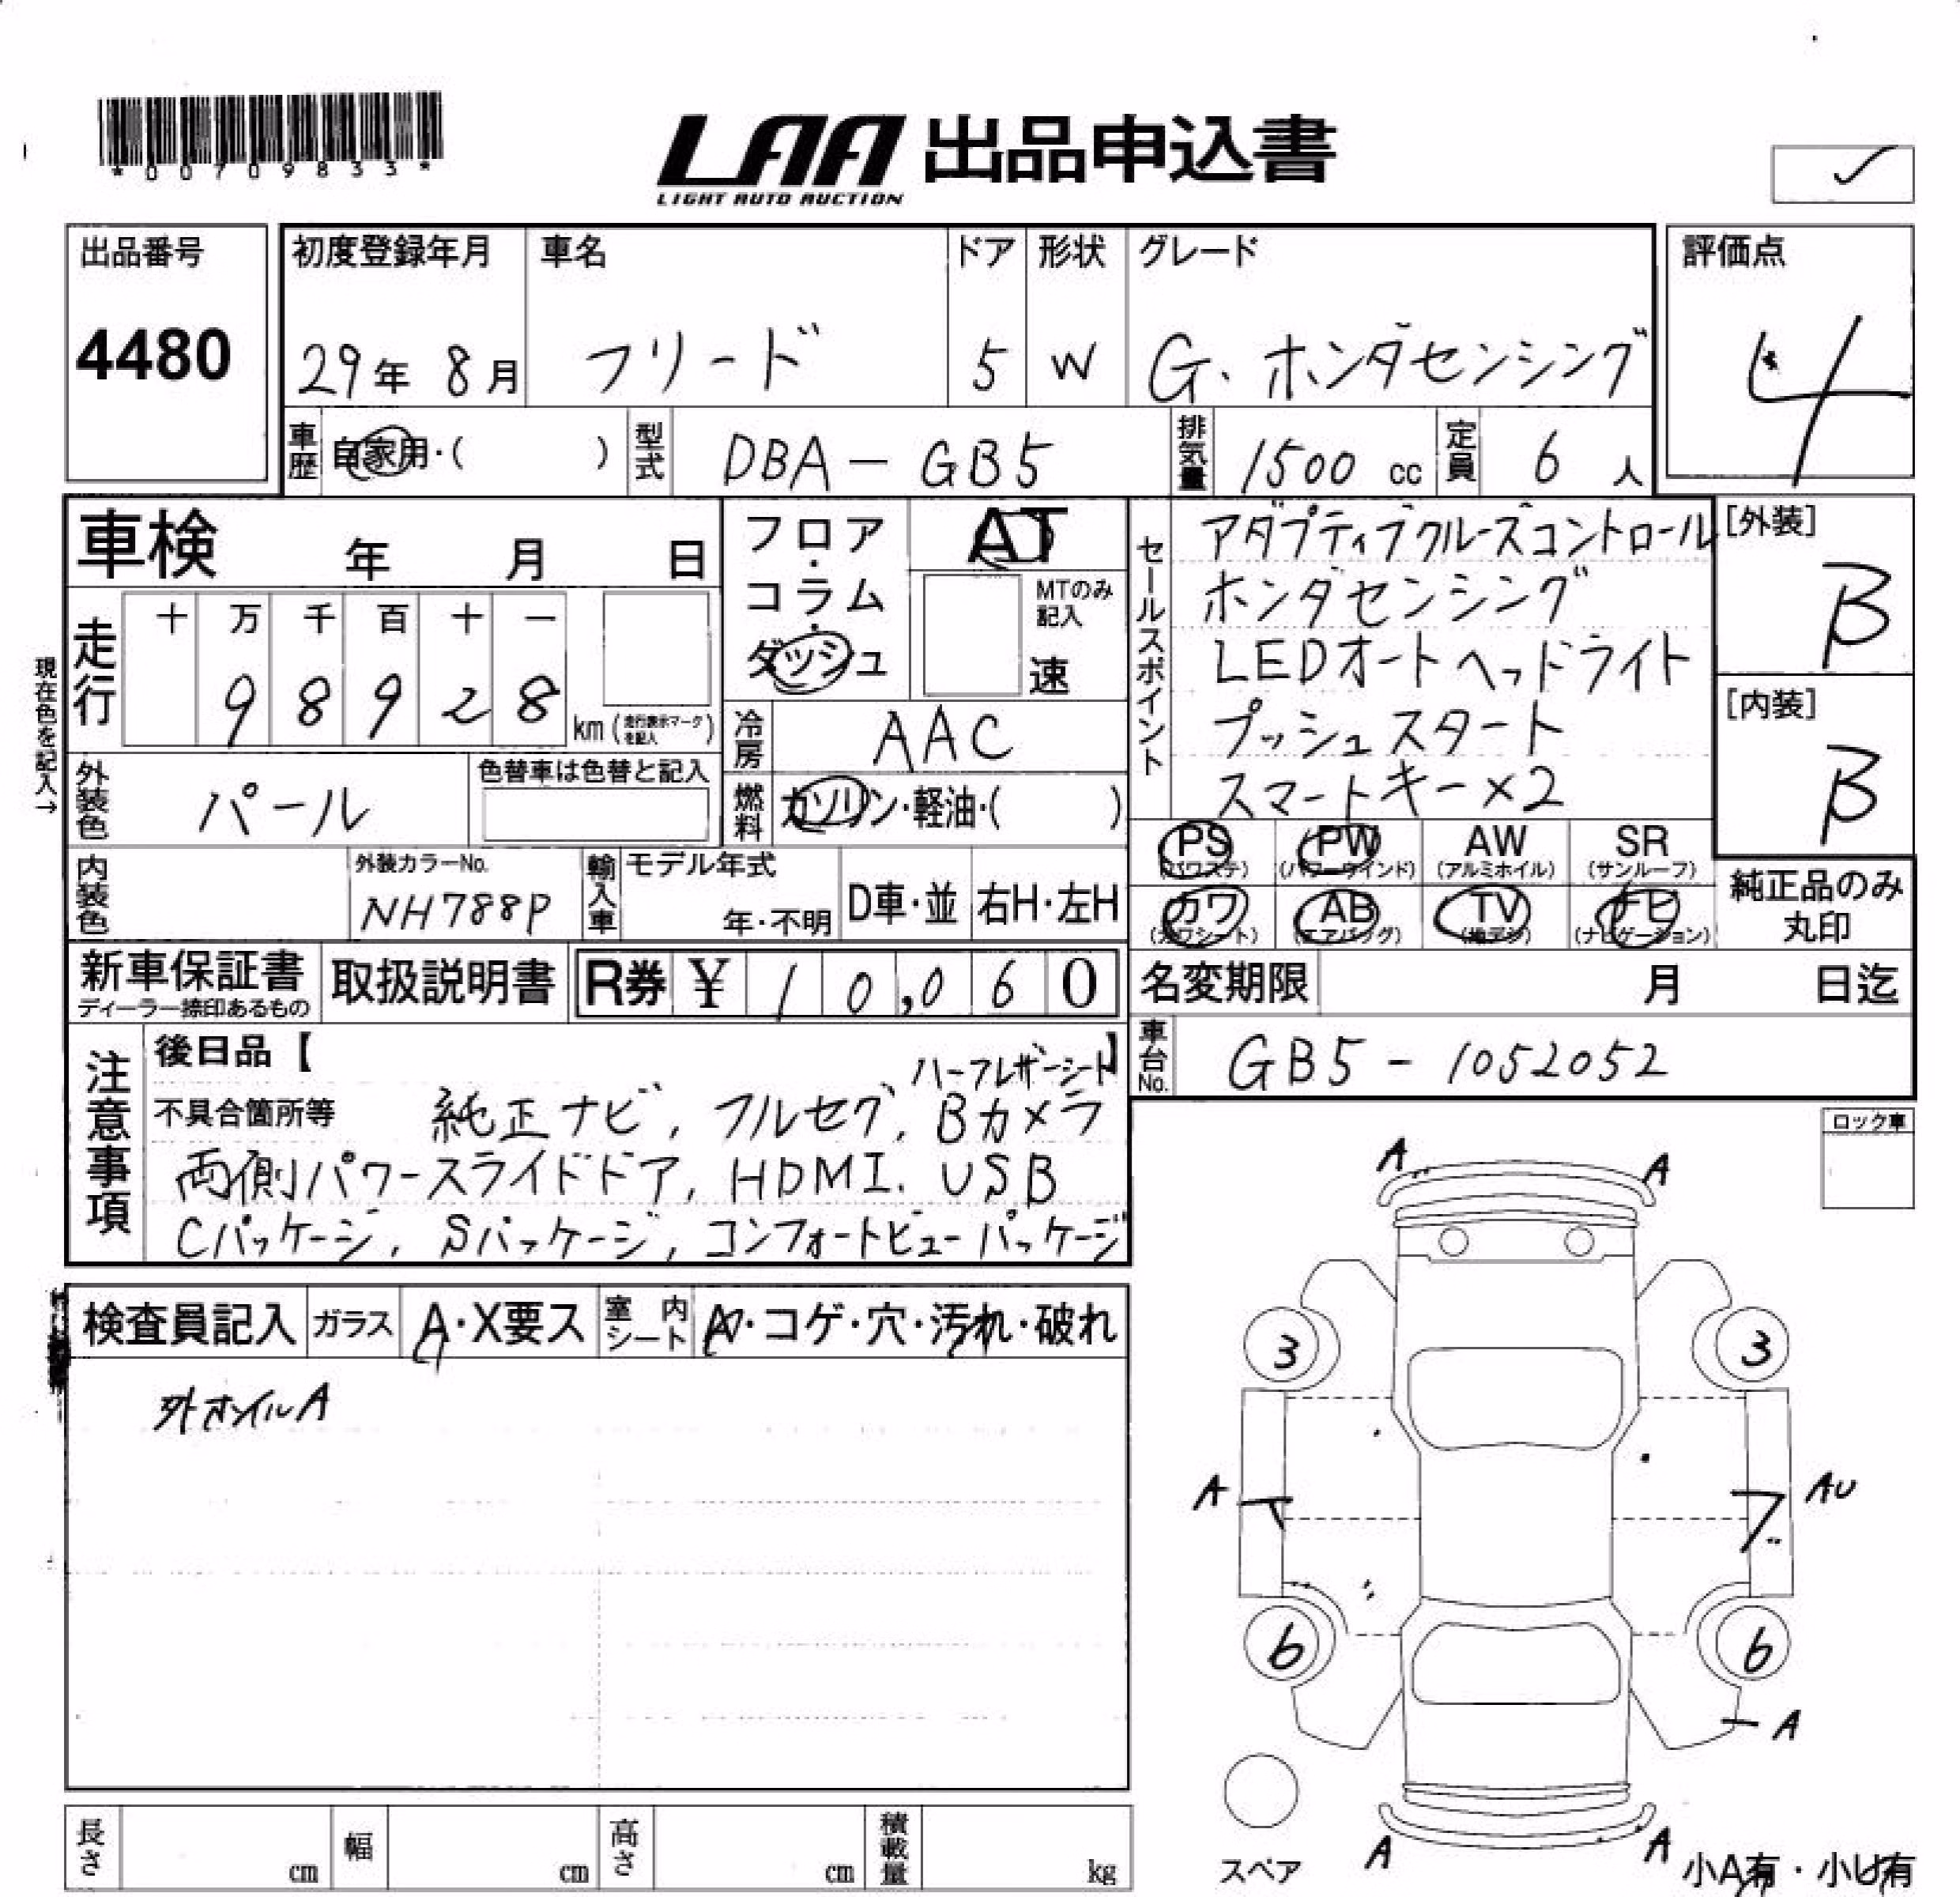 *00709833*
LAA 出品申込書
LIGHT AUTO AUCTION
出品番号 初度登録年月 車名 ドア 形状 グレード 評価点
4480 29年 8月 フリード 5 W G、ホンダセンシング 4
車歴 自家用・( ) 型式 DBA-GB5 排気量 1500 cc 定員 6 人
車検 年 月 日
フロア・コラム・ダッシュ
AT
MTのみ記入
速
セールスポイント
アダプティブクルーズコントロール
ホンダセンシング
LEDオートヘッドライト
プッシュスタート
スマートキー×2
[外装]
B
[内装]
B
現在色を記入→
走行 十 万 千 百 十 一
9 8 9 2 8 km (走行表示マークを記入)
冷房 AAC
外装色 パール
色替車は色替と記入
燃料 ガソリン・軽油・( )
PS AW SR PW
(パワステ) (パワーウインド) (アルミホイル) (サンルーフ)
カワ AB TV ナビ
(カワシート) (エアバッグ) (地デジ) (ナビゲーション)
純正品のみ
丸印
内装色 外装カラーNo.
NH788P
輸入車 モデル年式
年・不明 D車・並 右H・左H
新車保証書 取扱説明書 R券 ¥ 10,060
ディーラー捺印あるもの
名変期限 月 日迄
車台No. GB5-1052052
注意事項
後日品【 】
ハーフレザーシート
不具合箇所等 純正ナビ, フルセグ, Bカメラ
両側パワースライドドア, HDMI. USB
Cパッケージ, Sパッケージ, コンフォートビューパッケージ
ロック車
検査員記入 ガラス A・X要ス 室内シート A・コゲ・穴・汚れ・破れ
外ホイルA
A A
3 3
A AU
6 6
A
A A
スペア
小A有・小U有
長さ cm 幅 cm 高さ cm 積載量 kg